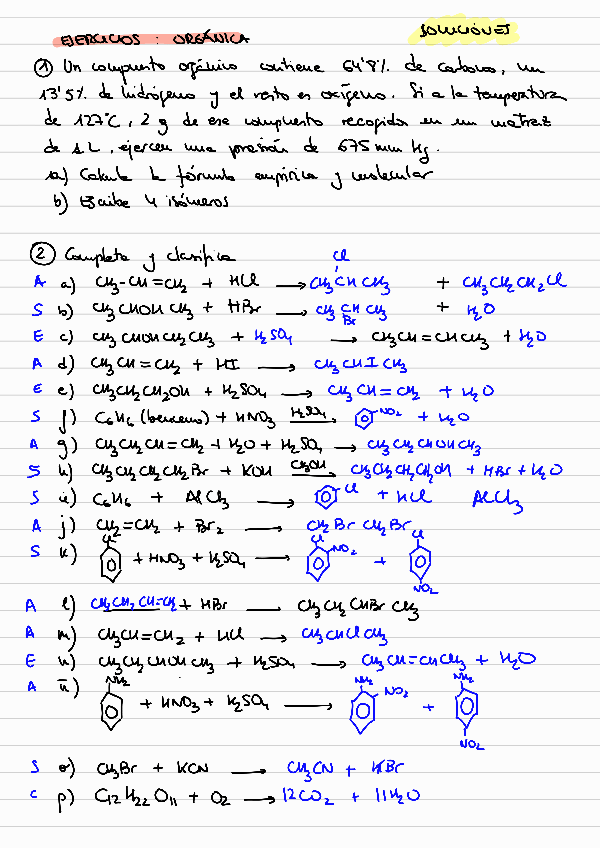 EJERCICIOS : ORGÁNICA
SOLUCIONES
① Un compuesto orgánico contiene 64'8% de carbono, un
13'5% de hidrógeno y el resto es oxígeno. Si a la temperatura
de 127°C, 2 g de ese compuesto recogido en un matraz
de 1 L, ejercen una presión de 675 mm Hg.
a) Calcula la fórmula empírica y molecular
b) Escribe 4 isómeros
② Completa y clasifica
Cl
A a) CH3-CH=CH2 + HCl → CH3CHCH3 + CH3CH2CH2Cl
S b) CH3CHOHCH3 + HBr → CH3CHCH3 + H2O
Br
E c) CH3CHOHCH2CH3 + H2SO4 → CH3CH=CHCH3 + H2O
A d) CH3CH=CH2 + HI → CH3CHICH3
E e) CH3CH2CH2OH + H2SO4 → CH3CH=CH2 + H2O
S f) C6H6 (benceno) + HNO3 H2SO4→ NO2 + H2O
A g) CH3CH2CH=CH2 + H2O + H2SO4 → CH3CH2CHOHCH3
S h) CH3CH2CH2CH2Br + KOH CH3OH→ CH3CH2CH2CH2OH + HBr + H2O
S i) C6H6 + AlCl3 → Cl + HCl AlCl3
A j) CH2=CH2 + Br2 → CH2Br CH2Br
Cl Cl Cl
S k) + HNO3 + H2SO4 → NO2 +
NO2
A l) CH3CH2CH=CH2 + HBr → CH3CH2CHBrCH3
A m) CH3CH=CH2 + HCl → CH3CHClCH3
E n) CH3CH2CHOHCH3 + H2SO4 → CH3CH=CHCH3 + H2O
NH2 NH2 NH2
A ñ) + HNO3 + H2SO4 → NO2 +
NO2
S o) CH3Br + KCN → CH3CN + KBr
C p) C12H22O11 + O2 → 12CO2 + 11H2O